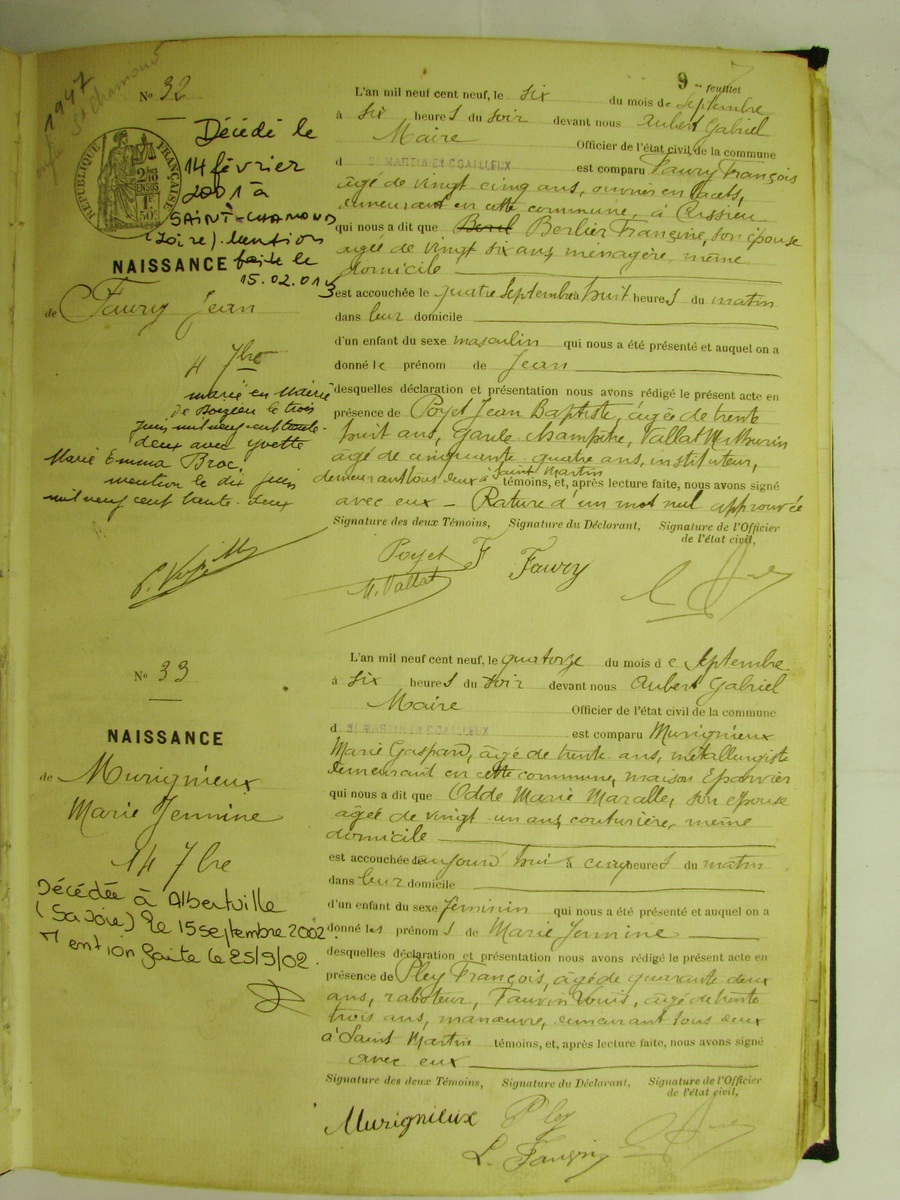 9 me feuillet
1947
St Chamond
No 32
RÉPUBLIQUE FRANÇAISE
Décédé le
14 février
2001 à
SAINT-CHAMOND
(Loire). Mention
faite le
15.02.01
NAISSANCE
de Faury Jean
4 7bre
marié en Mairie
de le trois
juin mil neuf cent trente-
deux avec Yvette
Marie Emma Broc.
mention le dix juin
mil neuf cent trente-deux
L'an mil neuf cent neuf, le six du mois de Septembre
à six heures du soir devant nous Aubert Gabriel
Maire Officier de l'état civil de la commune
d ST MARTIN EN COAILLEUX est comparu Faury François
âgé de vingt cinq ans, ouvrier en lacets,
demeurant en cette commune, à Cussieu
qui nous a dit que Berlier Françine, son épouse
âgée de vingt six ans, ménagère, même
domicile
est accouchée le quatre Septembre à huit heures du matin
dans leur domicile
d'un enfant du sexe masculin qui nous a été présenté et auquel on a
donné le prénom de Jean
desquelles déclaration et présentation nous avons rédigé le présent acte en
présence de Poyet Jean Baptiste, âgé de trente
huit ans, Garde champêtre, Vallat Mathurin
âgé de cinquante quatre ans, instituteur,
demeurant tous deux à Saint Martin témoins, et, après lecture faite, nous avons signé
avec eux – Rature d'un mot nul approuvée
Signature des deux Témoins, Signature du Déclarant, Signature de l'Officier
de l'état civil,
Poyet F Faury
M. Vallat
No 33
NAISSANCE
de Murignieux
Marie Jennine
14 7bre
Décédée à Albertville
(Savoie) le 15 septembre 2002.
Mention faite le 25/9/02.
L'an mil neuf cent neuf, le quatorze du mois de Septembre
à six heures du soir devant nous Aubert Gabriel
Maire Officier de l'état civil de la commune
d ST MARTIN EN COAILLEUX est comparu Murignieux
Marie Gaspard, âgé de trente ans, métallurgiste
demeurant en cette commune, maison Epanvier
qui nous a dit que Odde Marie Maralle, son épouse
âgée de vingt un ans, couturière, même
domicile
est accouchée aujourd'hui à cinq heures du matin
dans leur domicile
d'un enfant du sexe féminin qui nous a été présenté et auquel on a
donné les prénoms de Marie Jennine
desquelles déclaration et présentation nous avons rédigé le présent acte en
présence de Pley François, âgé de quarante deux
ans, raboteur, Fauvin Louis, âgé de trente
trois ans, manœuvre, demeurant tous deux
à Saint Martin témoins, et, après lecture faite, nous avons signé
avec eux
Signature des deux Témoins, Signature du Déclarant, Signature de l'Officier
de l'état civil,
Murignieux Pley
L. Fauvin